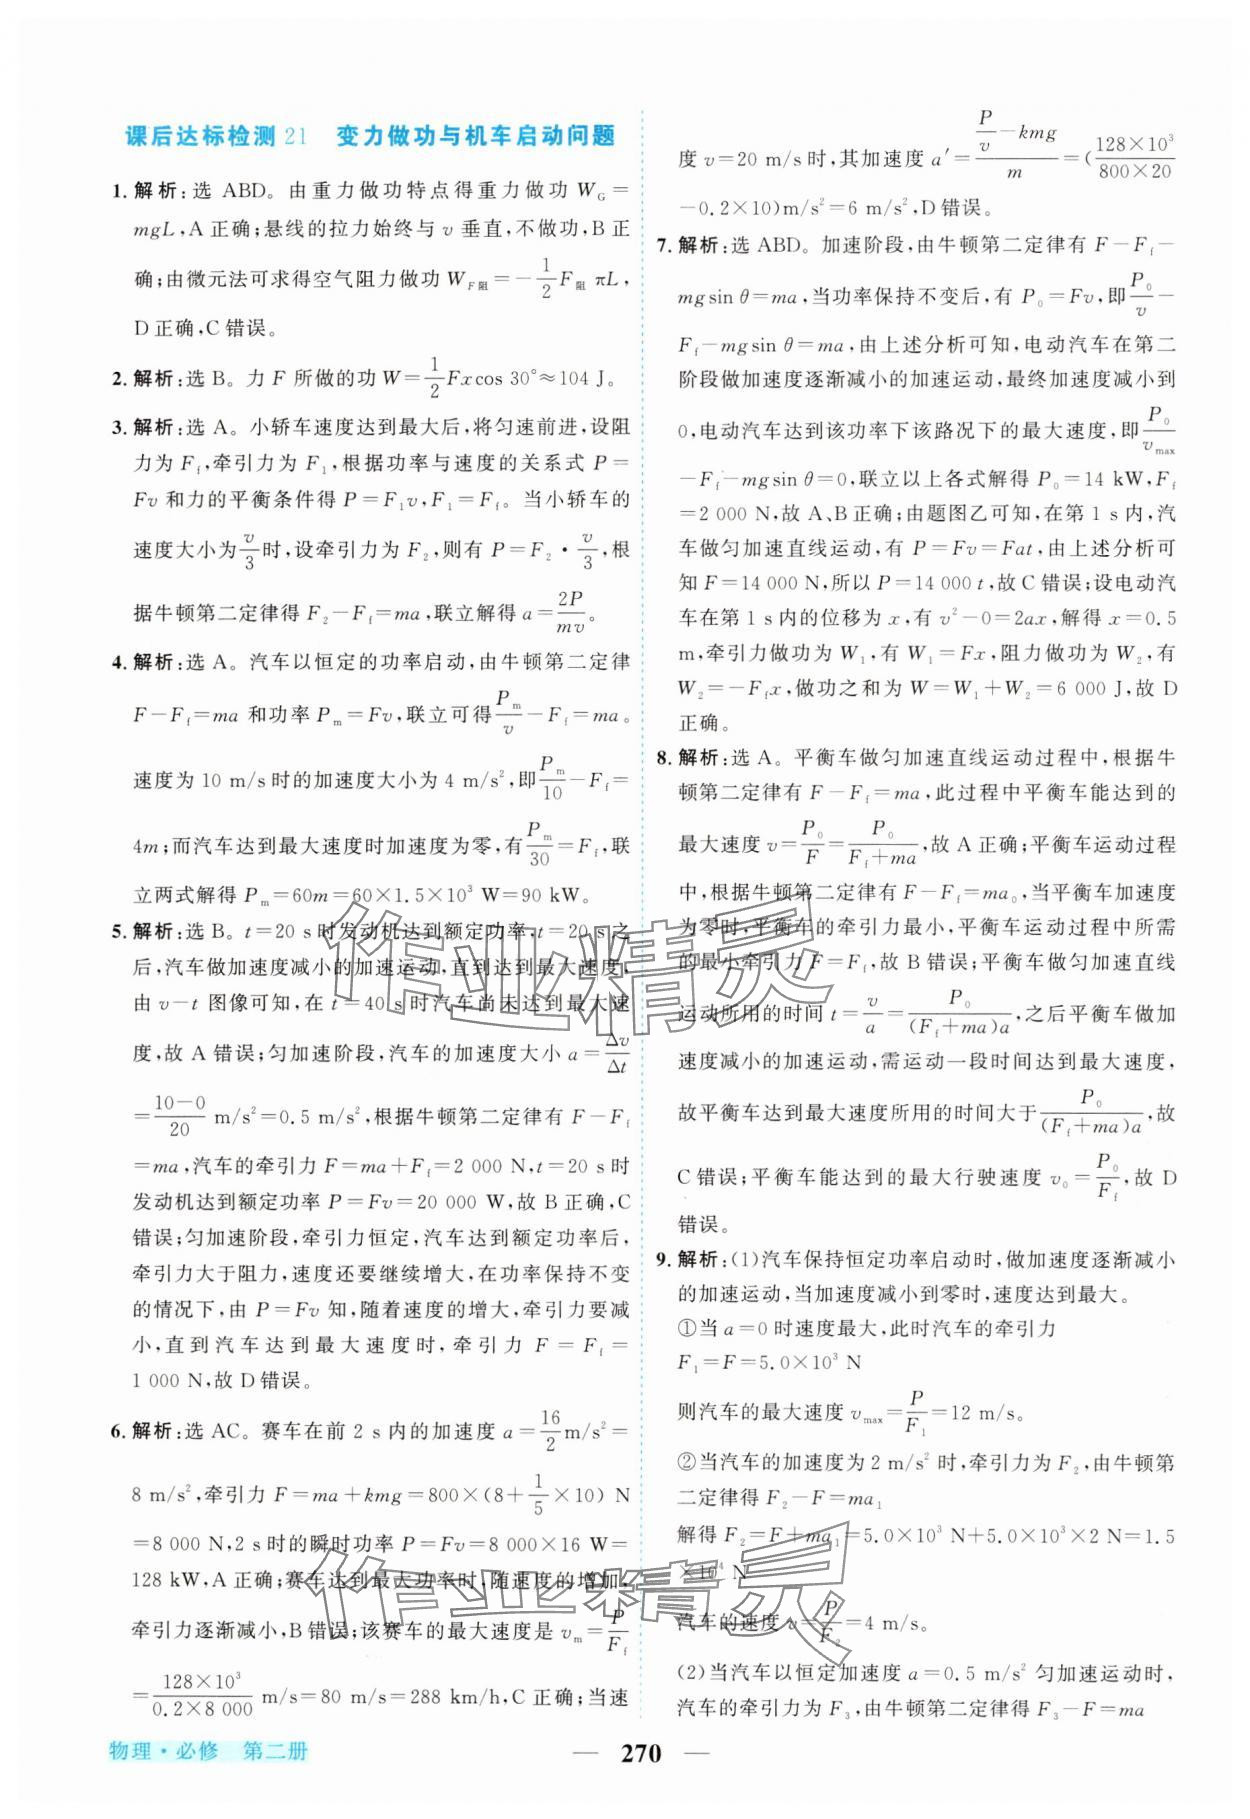 课后达标检测 21　变力做功与机车启动问题
1. 解析:选 ABD。由重力做功特点得重力做功 W_G =
mgL,A 正确;悬线的拉力始终与 v 垂直,不做功,B 正
确;由微元法可求得空气阻力做功 W_F阻 = −1/2 F_阻 πL,
D 正确,C 错误。
2. 解析:选 B。力 F 所做的功 W=1/2 Fxcos 30°≈104 J。
3. 解析:选 A。小轿车速度达到最大后,将匀速前进,设阻
力为 F_f,牵引力为 F_1,根据功率与速度的关系式 P=
Fv 和力的平衡条件得 P=F_1v,F_1=F_f。当小轿车的
速度大小为 v/3 时,设牵引力为 F_2,则有 P=F_2·v/3,根
据牛顿第二定律得 F_2−F_f=ma,联立解得 a=2P/mv。
4. 解析:选 A。汽车以恒定的功率启动,由牛顿第二定律
F−F_f=ma 和功率 P_m=Fv,联立可得 P_m/v−F_f=ma。
速度为 10 m/s 时的加速度大小为 4 m/s²,即 P_m/10−F_f=
4m;而汽车达到最大速度时加速度为零,有 P_m/30=F_f,联
立两式解得 P_m=60m=60×1.5×10³ W=90 kW。
5. 解析:选 B。t=20 s时发动机达到额定功率,t=20 s之
后,汽车做加速度减小的加速运动,直到达到最大速度,
由 v−t 图像可知,在 t=40 s时汽车尚未达到最大速
度,故 A 错误;匀加速阶段,汽车的加速度大小 a=Δv/Δt
=(10−0)/20 m/s²=0.5 m/s²,根据牛顿第二定律有 F−F_f
=ma,汽车的牵引力 F=ma+F_f=2 000 N,t=20 s时
发动机达到额定功率 P=Fv=20 000 W,故 B 正确,C
错误;匀加速阶段,牵引力恒定,汽车达到额定功率后,
牵引力大于阻力,速度还要继续增大,在功率保持不变
的情况下,由 P=Fv 知,随着速度的增大,牵引力要减
小,直到汽车达到最大速度时,牵引力 F=F_f=
1 000 N,故 D 错误。
6. 解析:选 AC。赛车在前 2 s 内的加速度 a=16/2 m/s²=
8 m/s²,牵引力 F=ma+kmg=800×(8+1/5×10) N
=8 000 N,2 s时的瞬时功率 P=Fv=8 000×16 W=
128 kW,A 正确;赛车达到最大功率时,随速度的增加,
牵引力逐渐减小,B 错误;该赛车的最大速度是 v_m=P/F_f
=(128×10³)/(0.2×8 000) m/s=80 m/s=288 km/h,C 正确;当速
度 v=20 m/s时,其加速度 a′=(P/v−kmg)/m=((128×10³)/(800×20)
−0.2×10)m/s²=6 m/s²,D 错误。
7. 解析:选 ABD。加速阶段,由牛顿第二定律有 F−F_f−
mgsin θ=ma,当功率保持不变后,有 P_0=Fv,即 P_0/v−
F_f−mgsin θ=ma,由上述分析可知,电动汽车在第二
阶段做加速度逐渐减小的加速运动,最终加速度减小到
0,电动汽车达到该功率下该路况下的最大速度,即 P_0/v_max
−F_f−mgsin θ=0,联立以上各式解得 P_0=14 kW,F_f
=2 000 N,故 A、B 正确;由题图乙可知,在第 1 s 内,汽
车做匀加速直线运动,有 P=Fv=Fat,由上述分析可
知 F=14 000 N,所以 P=14 000 t,故 C 错误;设电动汽
车在第 1 s 内的位移为 x,有 v²−0=2ax,解得 x=0.5
m,牵引力做功为 W_1,有 W_1=Fx,阻力做功为 W_2,有
W_2=−F_f x,做功之和为 W=W_1+W_2=6 000 J,故 D
正确。
8. 解析:选 A。平衡车做匀加速直线运动过程中,根据牛
顿第二定律有 F−F_f=ma,此过程中平衡车能达到的
最大速度 v=P_0/F=P_0/(F_f+ma),故 A 正确;平衡车运动过程
中,根据牛顿第二定律有 F−F_f=ma_0,当平衡车加速度
为零时,平衡车的牵引力最小,平衡车运动过程中所需
的最小牵引力 F=F_f,故 B 错误;平衡车做匀加速直线
运动所用的时间 t=v/a=P_0/((F_f+ma)a),之后平衡车做加
速度减小的加速运动,需运动一段时间达到最大速度,
故平衡车达到最大速度所用的时间大于 P_0/((F_f+ma)a),故
C 错误;平衡车能达到的最大行驶速度 v_0=P_0/F_f,故 D
错误。
9. 解析:(1)汽车保持恒定功率启动时,做加速度逐渐减小
的加速运动,当加速度减小到零时,速度达到最大。
①当 a=0 时速度最大,此时汽车的牵引力
F_1=F=5.0×10³ N
则汽车的最大速度 v_max=P/F_1=12 m/s。
②当汽车的加速度为 2 m/s² 时,牵引力为 F_2,由牛顿第
二定律得 F_2−F=ma_1
解得 F_2=F+ma_1=5.0×10³ N+5.0×10³×2 N=1.5
×10⁴ N
汽车的速度 v=P/F_2=4 m/s。
(2)当汽车以恒定加速度 a=0.5 m/s² 匀加速运动时,
汽车的牵引力为 F_3,由牛顿第二定律得 F_3−F=ma
作业精灵
作业精灵
物理·必修　第二册
— 270 —